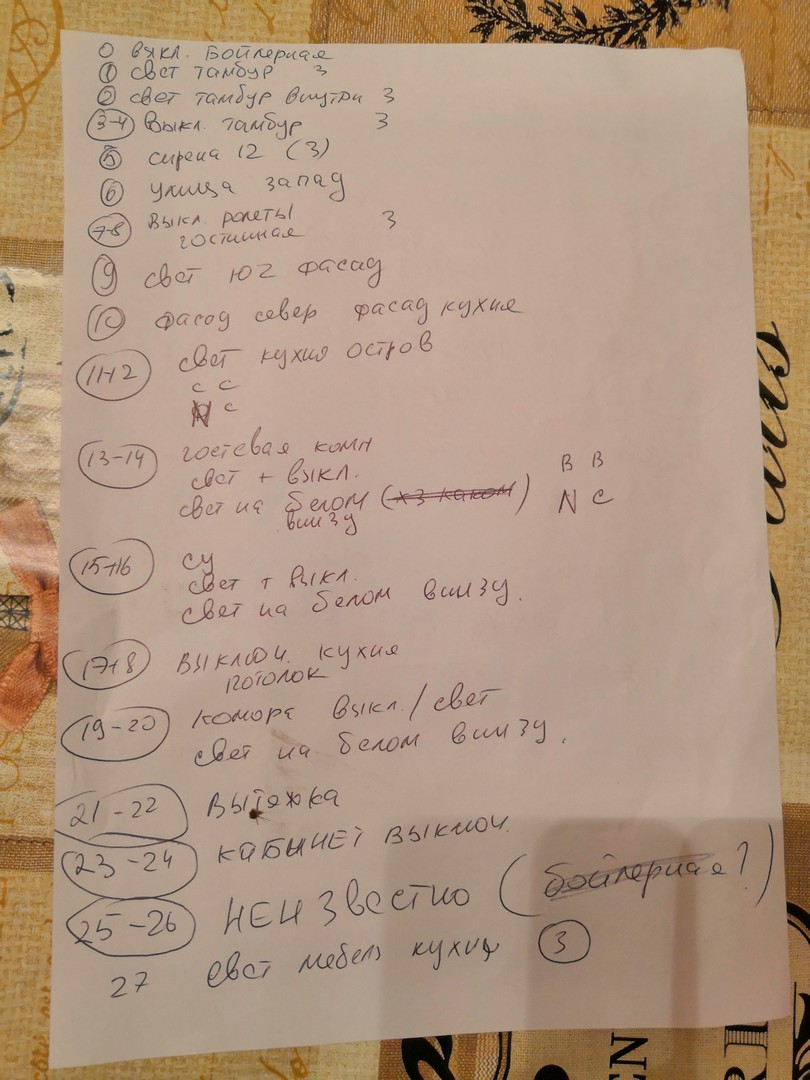 0 выкл. Бойлерная
1 свет тамбур 3
2 свет тамбур внутри 3
3-4 Выкл. тамбур 3
5 сирена 12 (3)
6 улица запад
7-8 Выкл. ролеты 3
гостинная
9 свет юг фасад
10 Фасад север фасад кухня
11-12 свет кухня остров
с с
N с
13-14 гостевая комн
свет + выкл. В В
свет на белом (хз каком) N С
внизу
15+16 СУ
свет + выкл.
свет на белом внизу.
17+18 выключ. кухня
потолок
19-20 комора выкл./свет
свет на белом внизу.
21-22 Вытяжка
23-24 кабинет выключ.
25-26 неизвестно (бойлерная?)
27 свет мебель кухня 3